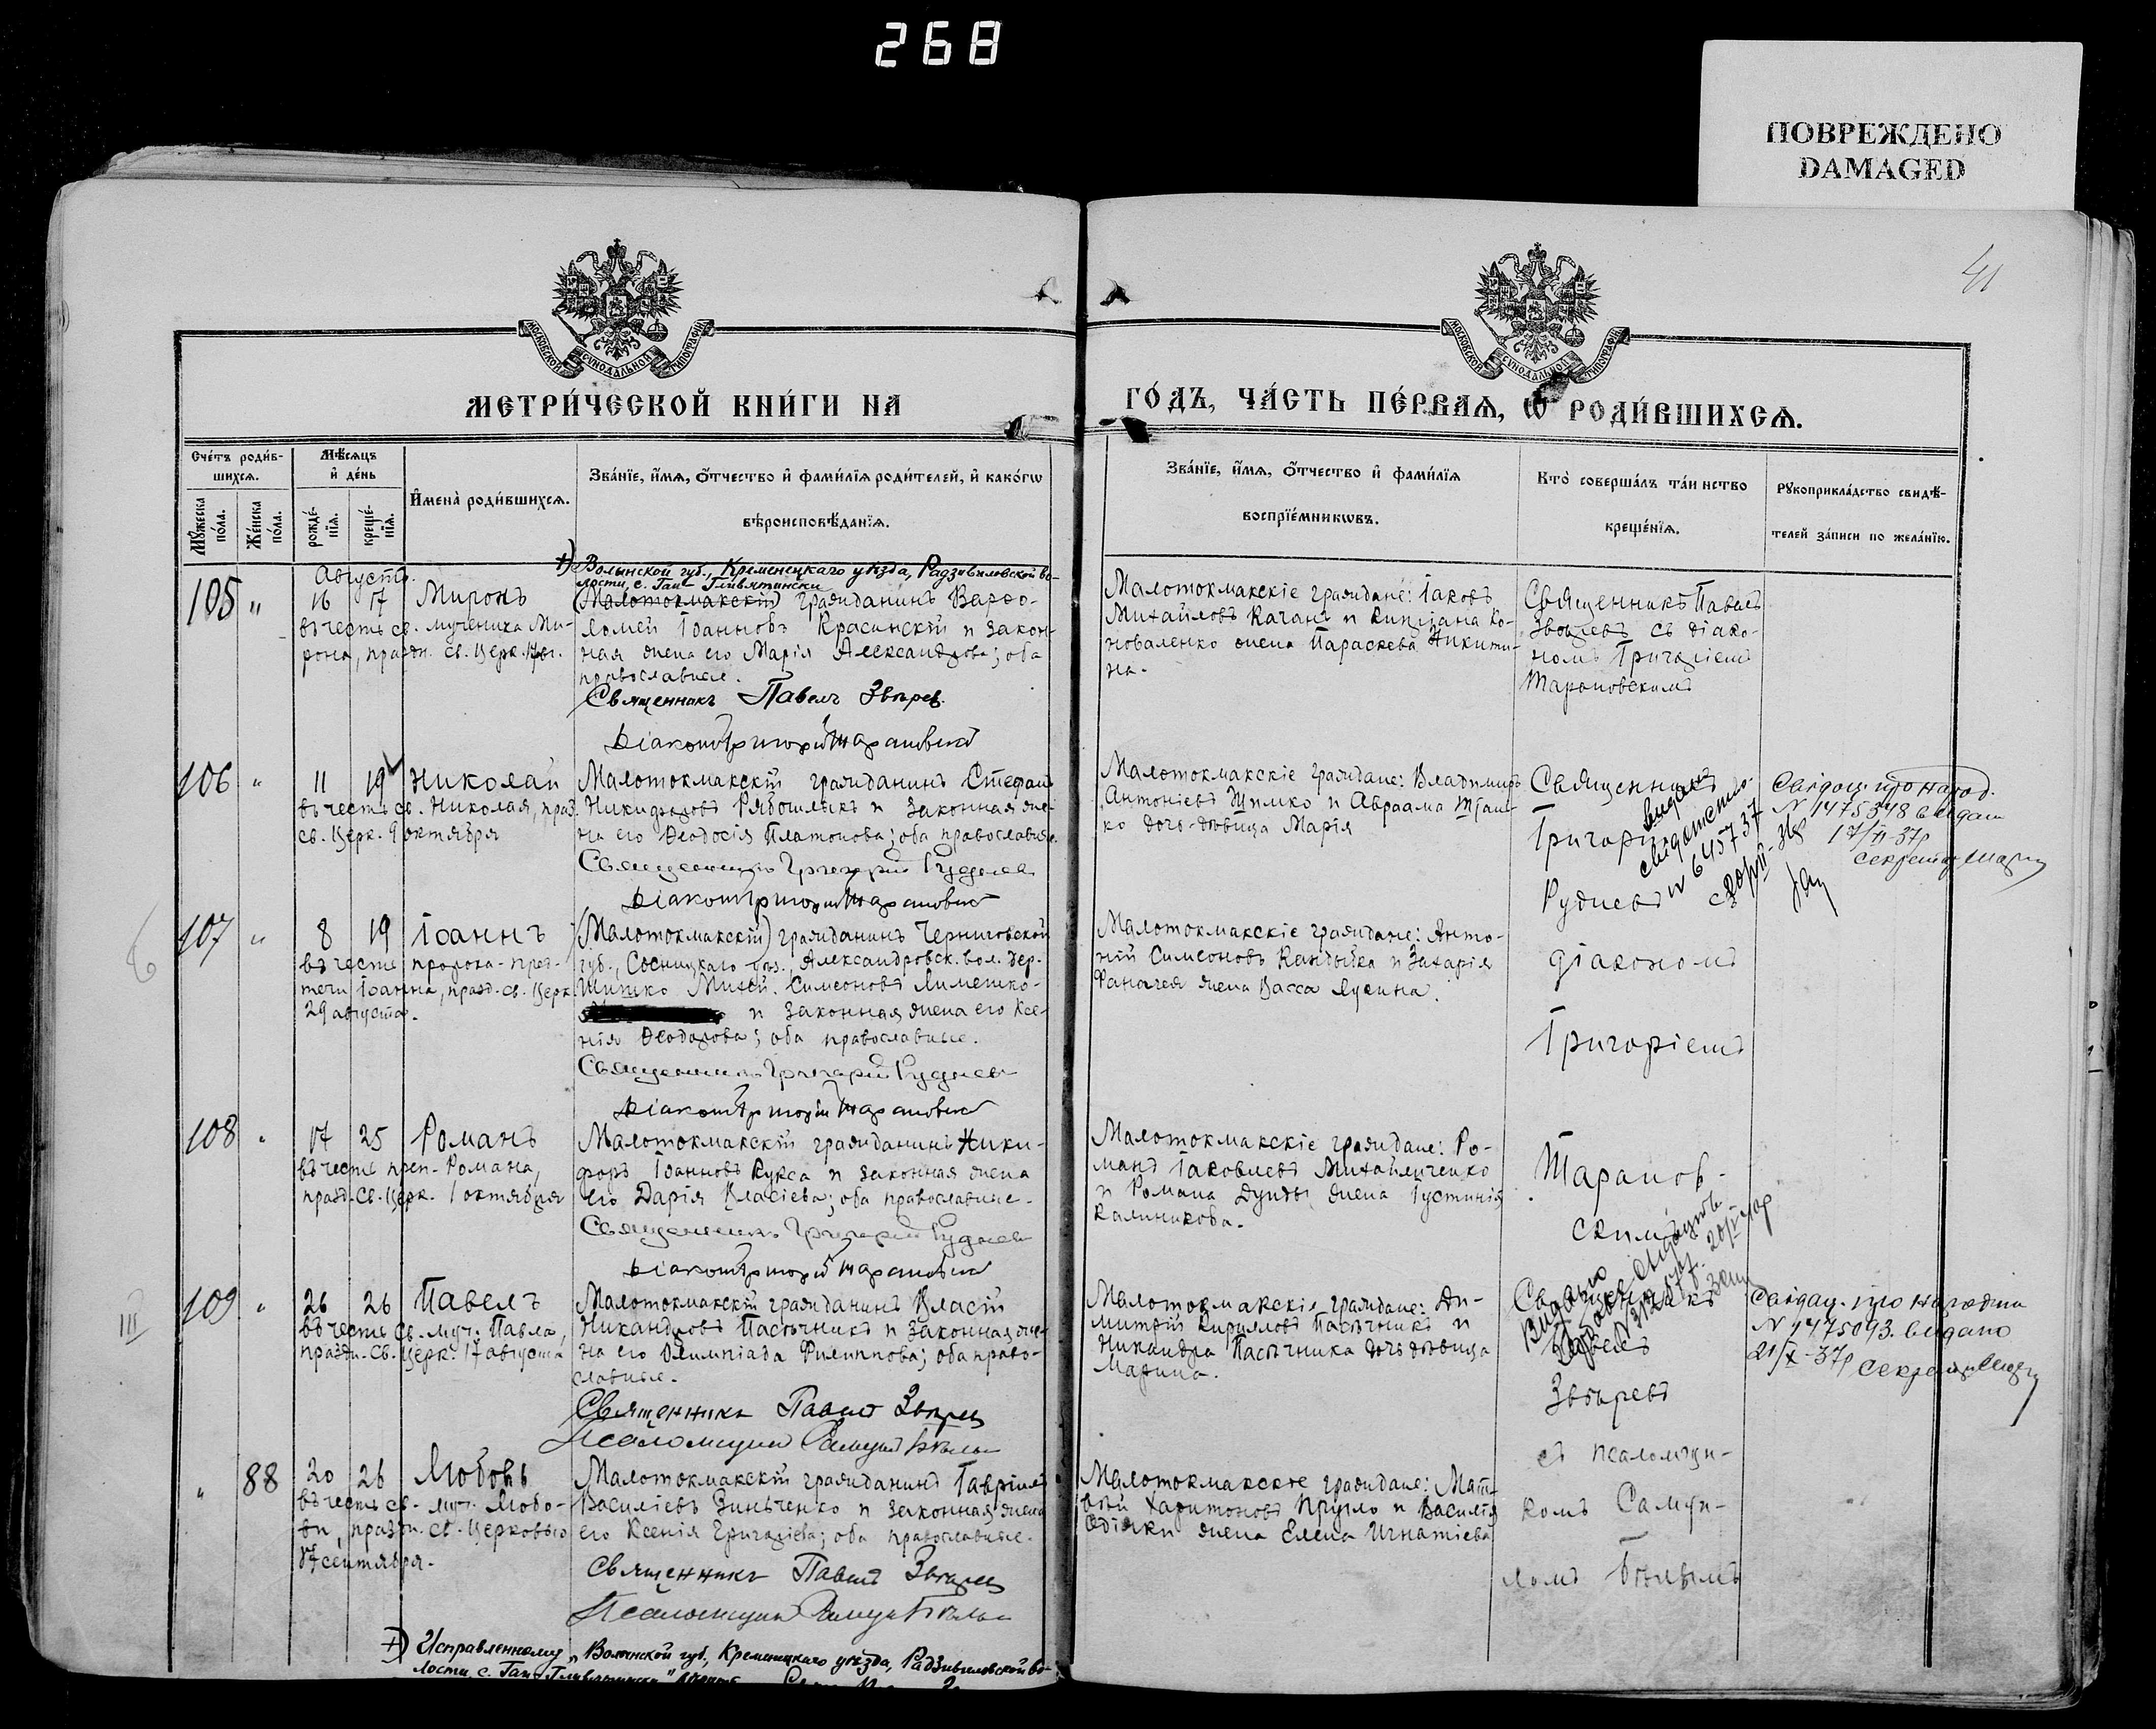 268
ПОВРЕЖДЕНО
DAMAGED
41
МОСКОВСКОЙ СУНОДАЛЬНОЙ ТИПОГРАФІИ
МОСКОВСКОЙ СУНОДАЛЬНОЙ ТИПОГРАФІИ
МЕТРИ́ЧЕСКОЙ КНИ́ГИ НА
ГО́ДЪ, ЧА́СТЬ ПЕ́РВАѦ, Ѡ РОДИ́ВШИХСѦ.
Сче́тъ роди́в-
шихсѧ.
Мꙋ́жеска
по́ла.
Же́нска
по́ла.
Мѣ́сѧцъ
и҆ де́нь
рожде́-
нїѧ.
креще́-
нїѧ.
И҆мена̀ роди́вшихсѧ.
Зва́нїе, и҆́мѧ, ѻ҆́тчество и҆ фами́лїѧ роди́телей, и҆ како́гѡ
вѣроисповѣ́данїѧ.
Зва́нїе, и҆́мѧ, ѻ҆́тчество и҆ фами́лїѧ
воспрїе́мникѡвъ.
Кто̀ соверша́лъ та́инство
креще́нїѧ.
Рꙋкоприкла́дство свидѣ́-
телей за́писи по жела́нїю.
Августъ.
105 " 16 17 Миронъ
въ честь св. мученика Ми-
рона, праздн. св. Церк. 17 авг.
+) Волынской губ., Кременецкаго уѣзда, Радзивиловской во-
лости, с.
(Малотокмакскій) гражданинъ Варѳо-
ломей Іоанновъ Красинскій и закон-
ная жена его Марія Александрова; оба
православные.
Священникъ Павелъ Звѣрев.
Діаконъ Григорій Тарановскій
Малотокмакскіе граждане: Іаковъ
Михайловъ Качанъ и Кипріана Ко-
новаленко жена Параскева Никити-
на.
Священникъ Павелъ
Звѣревъ съ діако-
номъ Григоріемъ
Тарановскимъ
106 " 11 19 Николай
въ честь св. Николая, празд.
св. Церк. 9 октября
Малотокмакскій гражданинъ Стефанъ
Никифоровъ Рябошлыкъ и законная же-
на его Ѳеодосія Платонова; оба православные.
Священникъ Григорій Рудневъ
Діаконъ Григорій Тарановскій
Малотокмакскіе граждане: Владиміръ
Антоніевъ Шимко и Авраама
ко дочь-дѣвица Марія
Священникъ
Григорій
Рудневъ
N 645737
Свідоц. про народ.
N 1475348 видан
17/II-37р
секретар
107 " 8 19 Іоаннъ
въ честь пророка-пред-
течи Іоанна, празд. св. Церк.
29 августа.
(Малотокмакскій) гражданинъ Черниговской
губ., Сосницкаго уѣз., Александровск. вол. дер.
Симеоновъ
и законная жена его Ксе-
нія Ѳеодорова; оба православные.
Священникъ Григорій Рудневъ
Діаконъ Григорій Тарановскій
Малотокмакскіе граждане: Анто-
ній Симеоновъ Кандыбка и Захарія
Фаначея жена Васса Лукина.
діакономъ
Григоріемъ
108 " 17 25 Романъ
въ честь преп. Романа,
празд. св. Церк. 1 октября
Малотокмакскій гражданинъ Ники-
форъ Іоанновъ Кукса и законная жена
его Дарія Власіева; оба православные.
Священникъ Григорій Рудневъ
Діаконъ Григорій Тарановскій
Малотокмакскіе граждане: Ро-
манъ Іаковлевъ Михайличенко
и Романа Дунды жена Іустинія
Калиникова.
Таранов-
скимъ
III
109 " 26 26 Павелъ
въ честь св. муч. Павла,
праздн. св. Церк. 17 августа
Малотокмакскій гражданинъ Власій
Никандровъ Пасѣчникъ и законная же-
на его Олимпіада Филиппова; оба право-
славные.
Священникъ Павелъ Звѣрев
Псаломщикъ Самуилъ Бѣлый
Малотокмакскіе граждане: Ди-
митрій Кирилловъ Пасѣчникъ и
Никандра Пасѣчника дочь дѣвица
Марина.
Священникъ
Павелъ
Звѣревъ
Свідоц. про народжен
N 1475093. видано
21/X-37р секретар
" 88 20 26 Любовь
въ честь св. муч. Любо-
ви, праздн. св. Церковью
17 сентября.
Малотокмакскій гражданинъ Гавріилъ
Василіевъ Зинченко и законная жена
его Ксенія Григоріева; оба православные.
Священникъ Павелъ Звѣрев
Псаломщикъ Самуилъ Бѣлый
Малотокмакскіе граждане: Мат-
вѣй Харитоновъ Пругло и Василія
жена Елена Игнатіева
съ псаломщи-
комъ Самуи-
ломъ Бѣлымъ
+) Исправленному „Волынской губ., Кременецкаго уѣзда, Радзивиловской во-
лости, с.